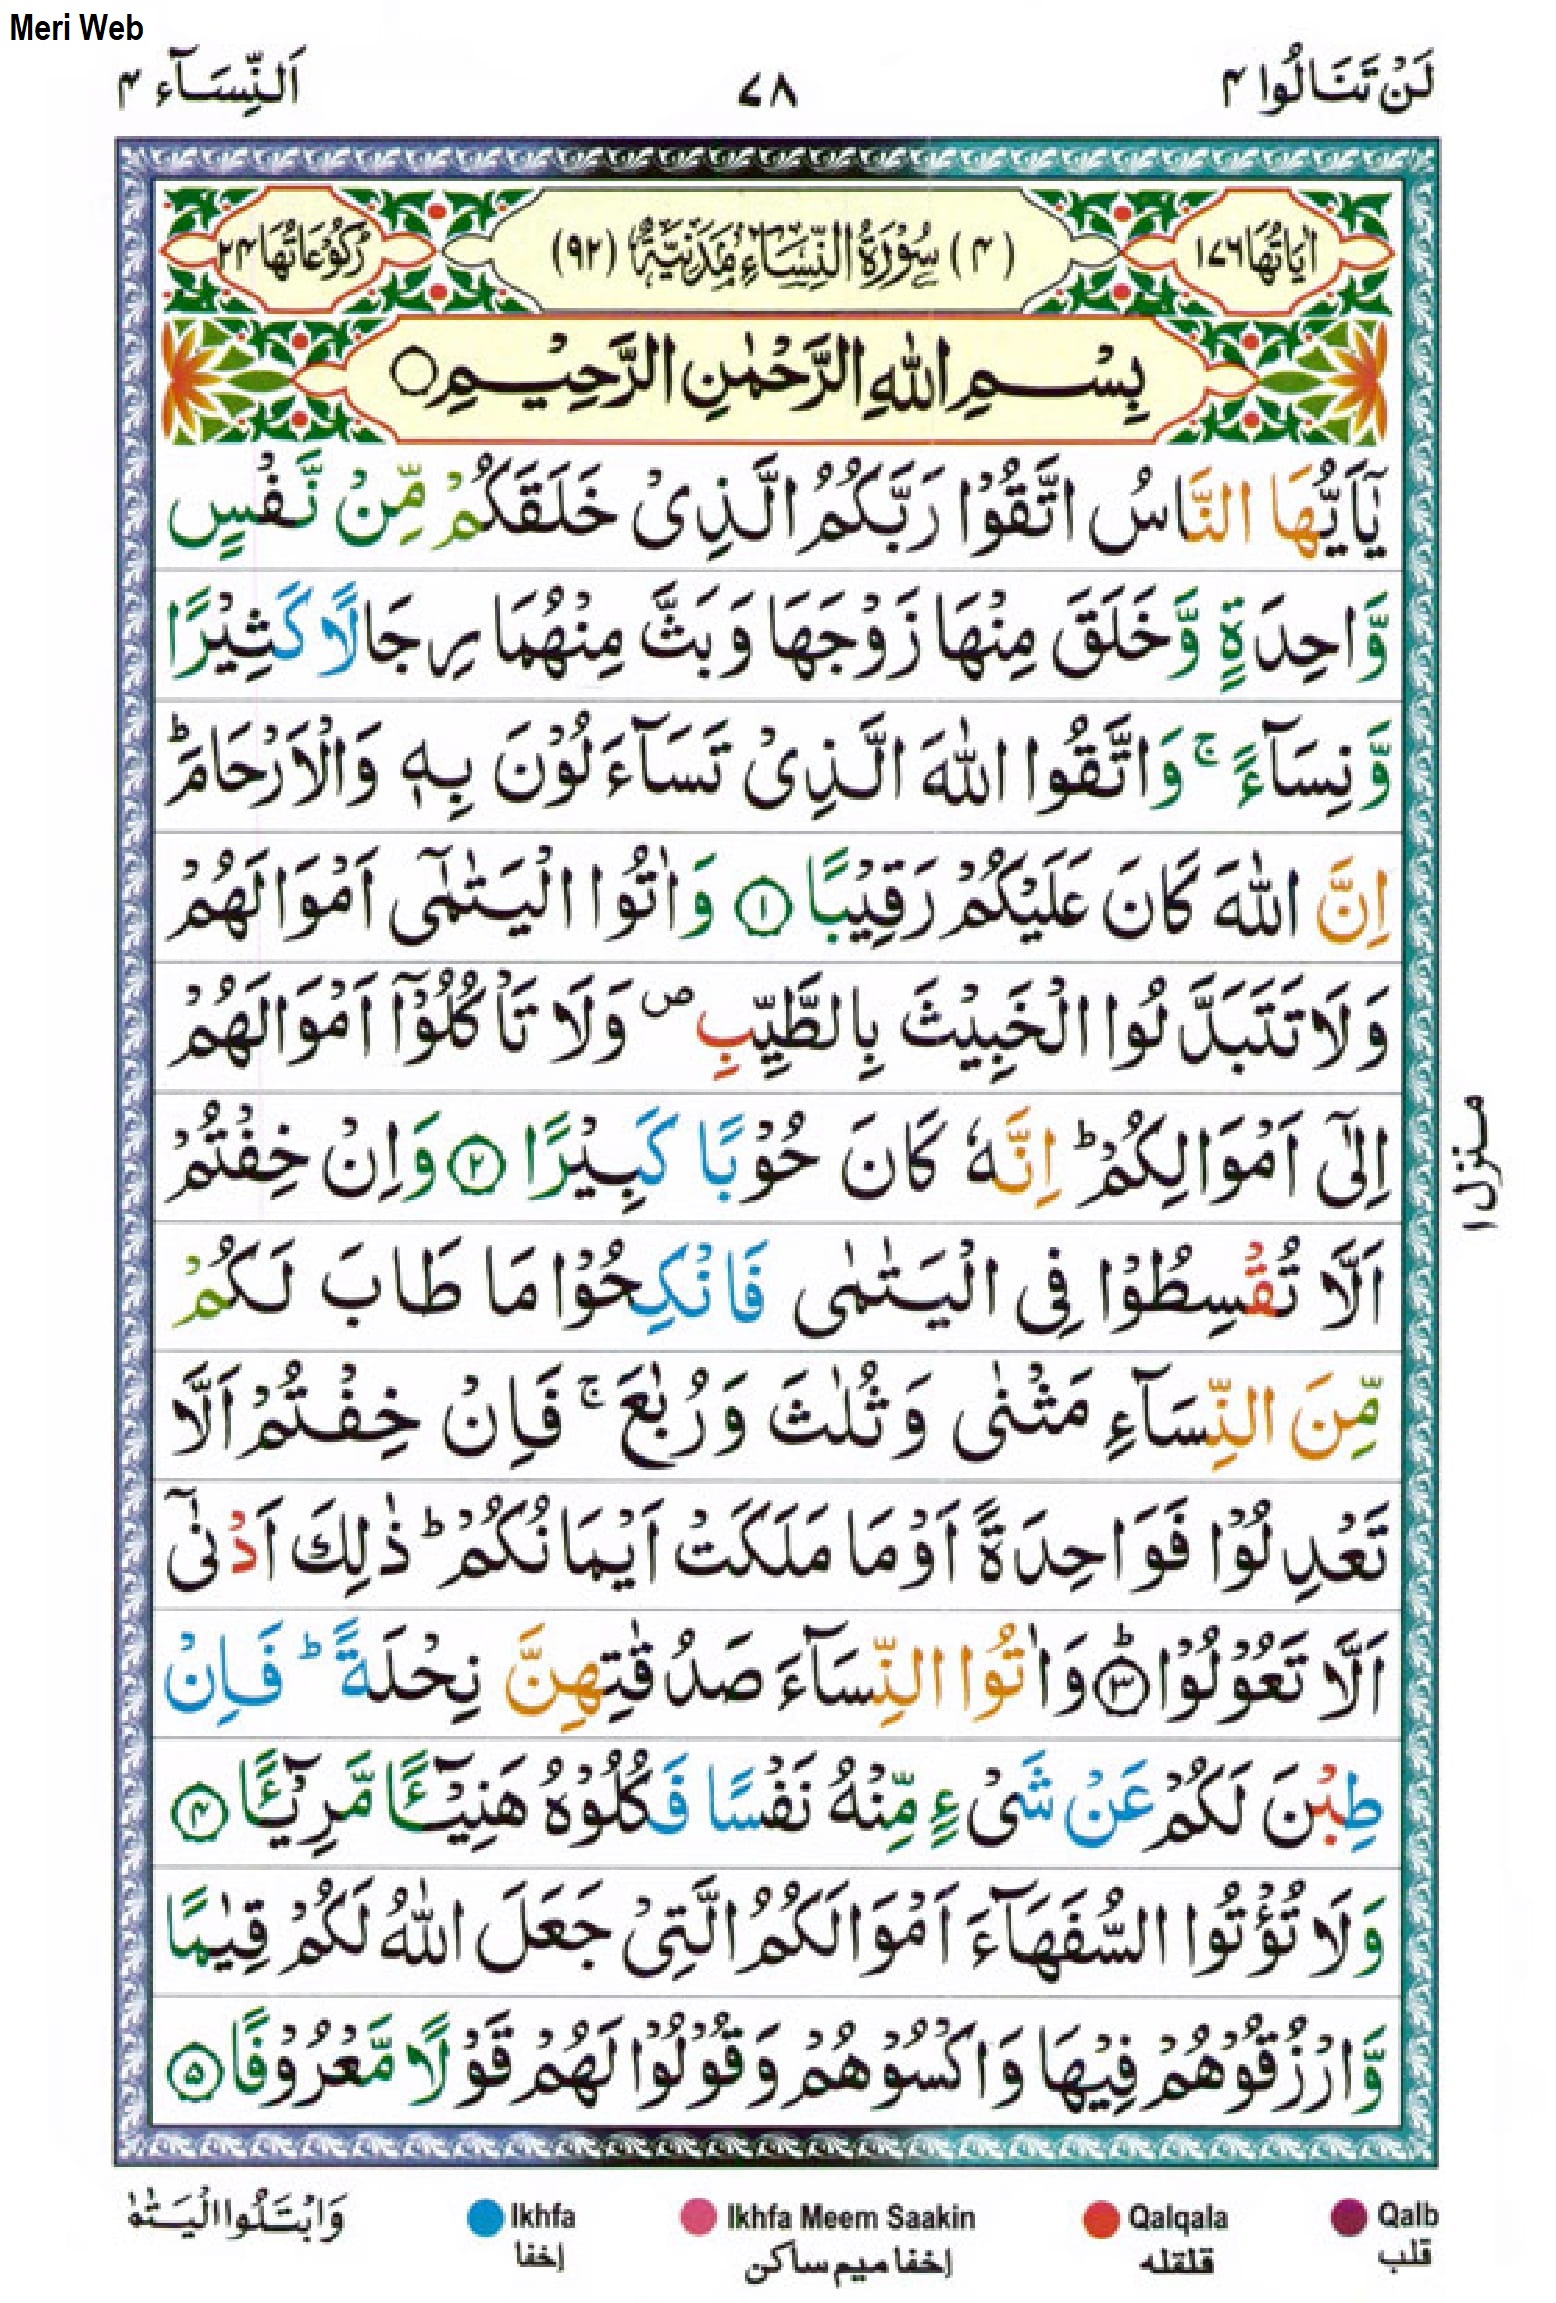 Meri Web
لَنْ تَنَالُوا ۴
۷۸
اَلنِّسَآء ۴
اٰيَاتُهَا ۱۷۶
(۴) سُوْرَةُ النِّسَآءِ مَدَنِيَّةٌ (۹۲)
رُكُوْعَاتُهَا ۲۴
بِسْمِ اللّٰهِ الرَّحْمٰنِ الرَّحِيْمِ ○
يٰۤاَيُّهَا النَّاسُ اتَّقُوْا رَبَّكُمُ الَّذِىْ خَلَقَكُمْ مِّنْ نَّفْسٍ
وَّاحِدَةٍ وَّخَلَقَ مِنْهَا زَوْجَهَا وَبَثَّ مِنْهُمَا رِجَالًا كَثِيْرًا
وَّنِسَآءً ۚ وَاتَّقُوا اللّٰهَ الَّذِىْ تَسَآءَلُوْنَ بِهٖ وَالْاَرْحَامَ ؕ
اِنَّ اللّٰهَ كَانَ عَلَيْكُمْ رَقِيْبًا ﴿۱﴾ وَاٰتُوا الْيَتٰمٰٓى اَمْوَالَهُمْ
وَلَا تَتَبَدَّلُوا الْخَبِيْثَ بِالطَّيِّبِ ص وَلَا تَاْكُلُوْۤا اَمْوَالَهُمْ
اِلٰٓى اَمْوَالِكُمْ ؕ اِنَّهٗ كَانَ حُوْبًا كَبِيْرًا ﴿۲﴾ وَاِنْ خِفْتُمْ
اَلَّا تُقْسِطُوْا فِى الْيَتٰمٰى فَانْكِحُوْا مَا طَابَ لَكُمْ
مِّنَ النِّسَآءِ مَثْنٰى وَثُلٰثَ وَرُبٰعَ ۚ فَاِنْ خِفْتُمْ اَلَّا
تَعْدِلُوْا فَوَاحِدَةً اَوْ مَا مَلَكَتْ اَيْمَانُكُمْ ؕ ذٰلِكَ اَدْنٰٓى
اَلَّا تَعُوْلُوْا ؕ﴿۳﴾ وَاٰتُوا النِّسَآءَ صَدُقٰتِهِنَّ نِحْلَةً ؕ فَاِنْ
طِبْنَ لَكُمْ عَنْ شَىْءٍ مِّنْهُ نَفْسًا فَكُلُوْهُ هَنِيْٓـئًا مَّرِيْٓـئًا ﴿۴﴾
وَلَا تُؤْتُوا السُّفَهَآءَ اَمْوَالَكُمُ الَّتِىْ جَعَلَ اللّٰهُ لَكُمْ قِيٰمًا
وَّارْزُقُوْهُمْ فِيْهَا وَاكْسُوْهُمْ وَقُوْلُوْا لَهُمْ قَوْلًا مَّعْرُوْفًا ﴿۵﴾
منزل ۱
وَابْتَلُوا الْيَتٰمٰ
Ikhfa
إخفا
Ikhfa Meem Saakin
إخفا ميم ساكن
Qalqala
قلقله
Qalb
قلب